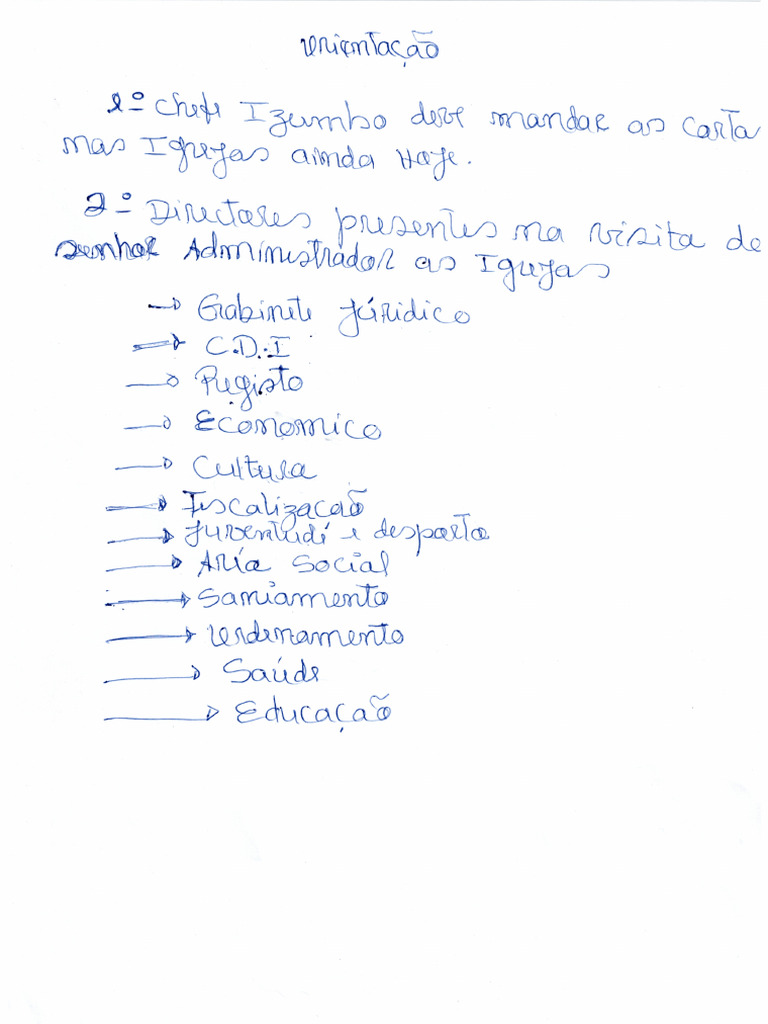 Orientação
1º Chefe Izumbo deve mandar as carta
nas Igrejas ainda Hoje.
2º Directores presentes na visita de
senhor Administrador as Igrejas
→ Gabinete Júridico
→ C.D.I
→ Registo
→ Economico
→ Cultura
→ Fiscalização
→ Juventude e desporto
→ Aréa Social
→ Saniamento
→ Ordenamento
→ Saúde
→ Educação